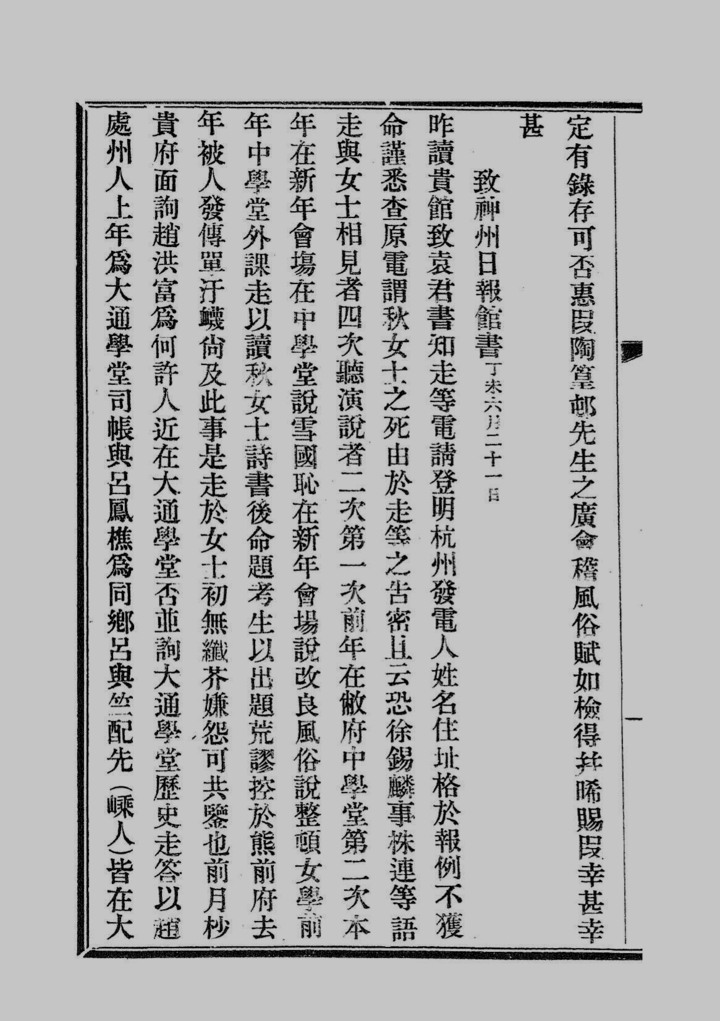 定有錄存可否惠叚陶篁邨先生之廣會稽風俗賦如檢得幷晞賜叚幸甚幸
甚
致神州日報館書丁未六月二十一日
昨讀貴館致袁君書知走等電請登明杭州發電人姓名住址格於報例不獲
命謹悉查原電謂秋女士之死由於走等之告密且云恐徐錫麟事株連等語
走與女士相見者四次聽演說者二次第一次前年在敝府中學堂第二次本
年在新年會塲在中學堂說雪國恥在新年會場說改良風俗說整頓女學前
年中學堂外課走以讀秋女士詩書後命題考生以出題荒謬控於熊前府去
年被人發傳單汙衊尙及此事是走於女士初無纖芥嫌怨可共鑒也前月杪
貴府面詢趙洪富爲何許人近在大通學堂否並詢大通學堂歷史走答以趙
處州人上年爲大通學堂司帳與呂鳳樵爲同鄕呂與竺配先（嵊人）皆在大